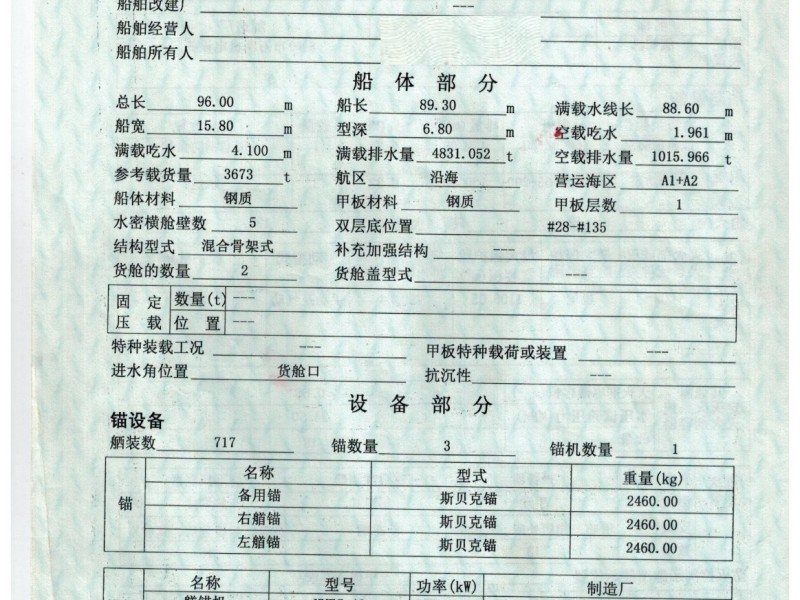 船舶改建厂 ---
船舶经营人
船舶所有人
船体部分
总长 96.00 m 船长 89.30 m 满载水线长 88.60 m
船宽 15.80 m 型深 6.80 m 空载吃水 1.961 m
满载吃水 4.100 m 满载排水量 4831.052 t 空载排水量 1015.966 t
参考载货量 3673 t 航区 沿海 营运海区 A1+A2
船体材料 钢质 甲板材料 钢质 甲板层数 1
水密横舱壁数 5 双层底位置 #28-#135
结构型式 混合骨架式 补充加强结构 ---
货舱的数量 2 货舱盖型式 ---
固定 数量(t) ---
压载 位置 ---
特种装载工况 --- 甲板特种载荷或装置 ---
进水角位置 货舱口 抗沉性 ---
设备部分
锚设备
舾装数 717 锚数量 3 锚机数量 1
名称 型式 重量(kg)
锚 备用锚 斯贝克锚 2460.00
右艏锚 斯贝克锚 2460.00
左艏锚 斯贝克锚 2460.00
名称 型号 功率(kW) 制造厂